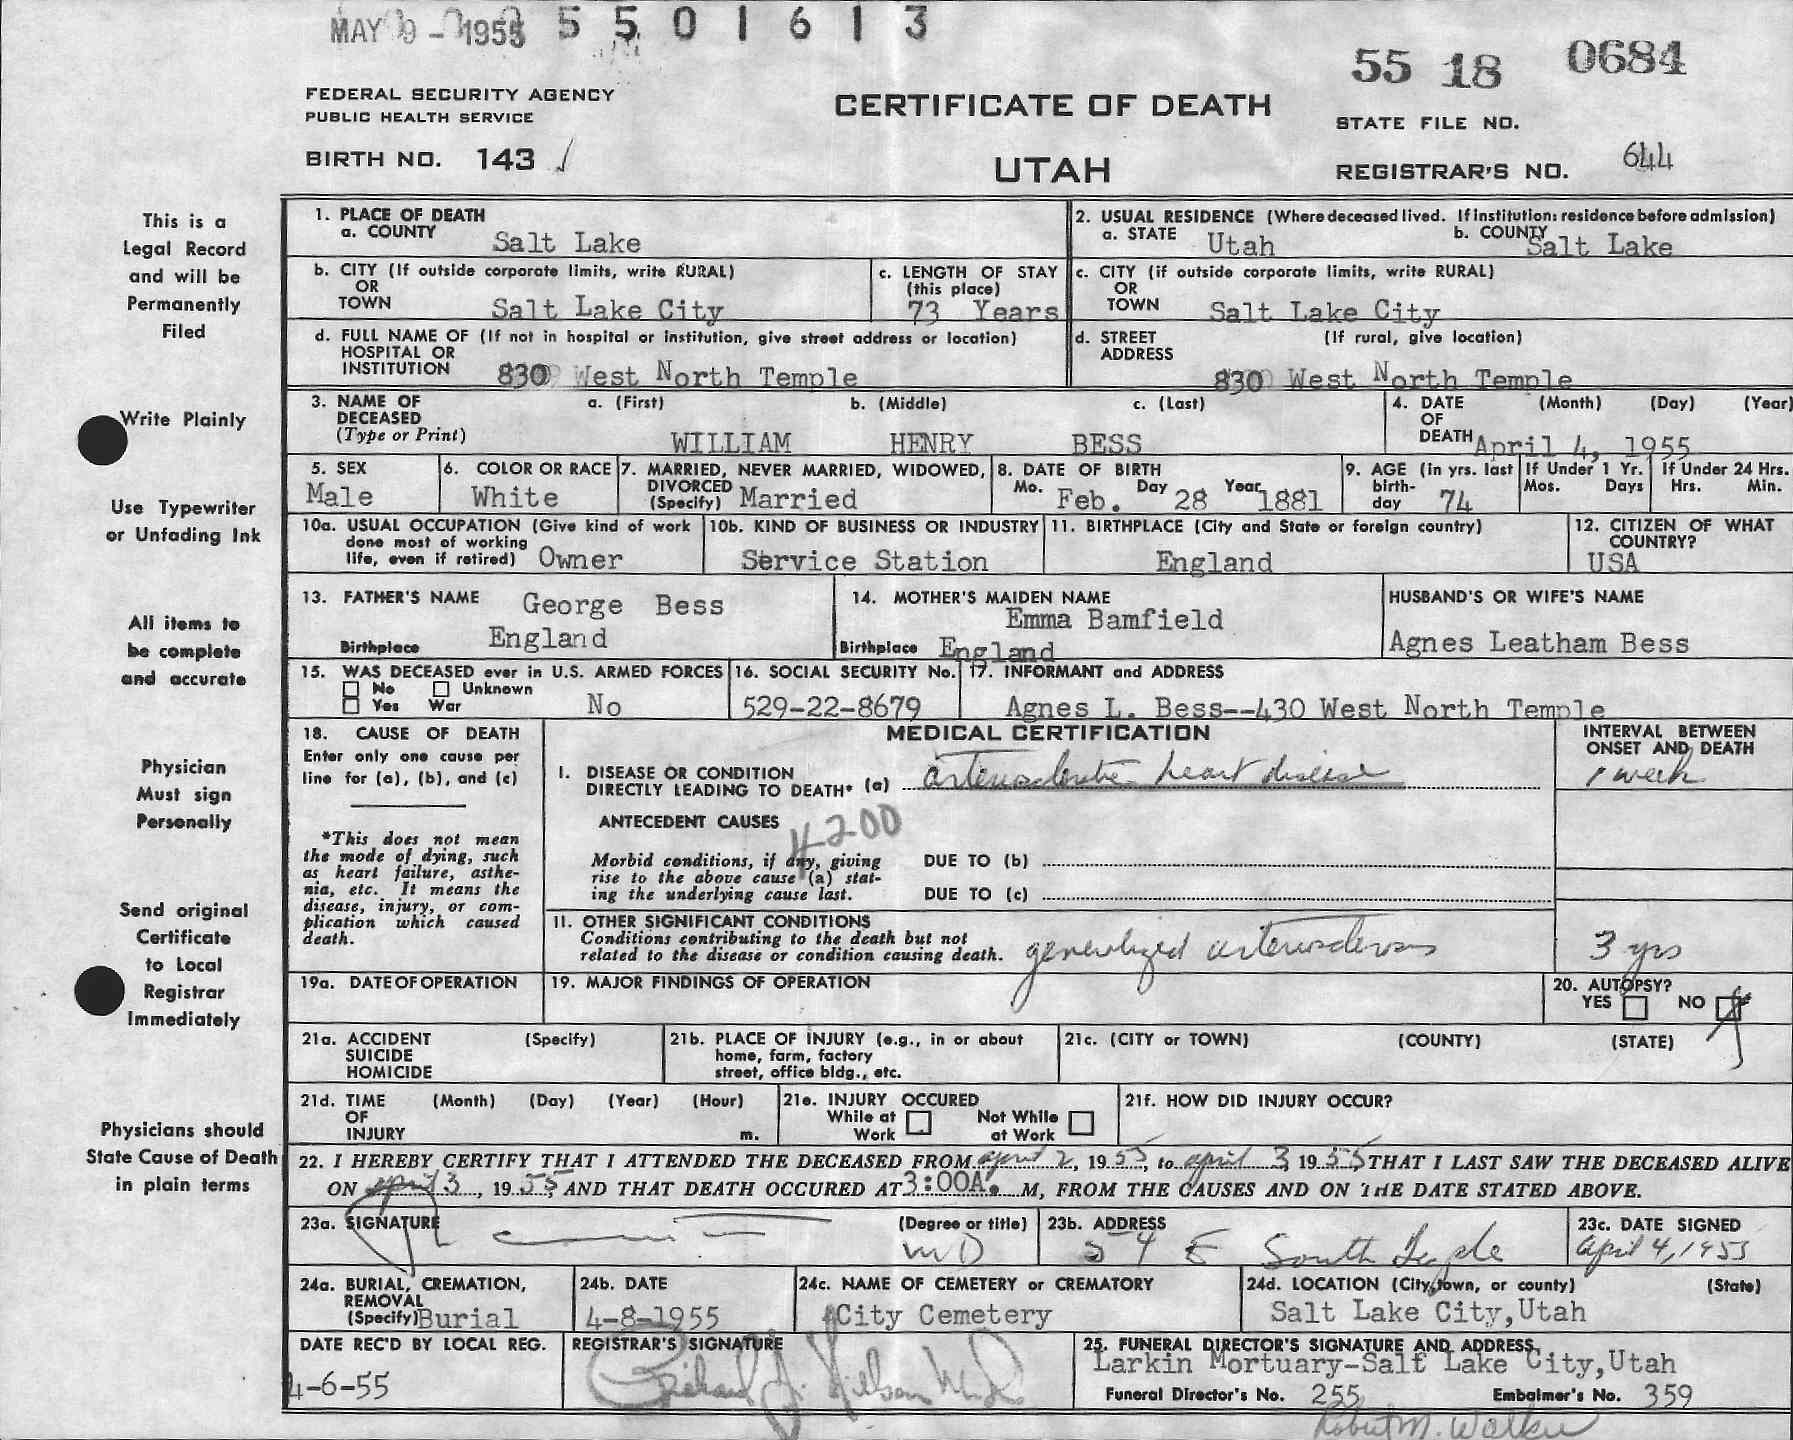 MAY 9 - 1955 5 5 0 1 6 1 3
55 18 0684
FEDERAL SECURITY AGENCY
PUBLIC HEALTH SERVICE
CERTIFICATE OF DEATH
STATE FILE NO.
BIRTH NO. 143
UTAH
REGISTRAR'S NO. 644
This is a
Legal Record
and will be
Permanently
Filed
Write Plainly
Use Typewriter
or Unfading Ink
All items to
be complete
and accurate
Physician
Must sign
Personally
Send original
Certificate
to Local
Registrar
Immediately
Physicians should
State Cause of Death
in plain terms
1. PLACE OF DEATH
a. COUNTY Salt Lake
2. USUAL RESIDENCE (Where deceased lived. If institution: residence before admission)
a. STATE Utah b. COUNTY Salt Lake
b. CITY (If outside corporate limits, write RURAL)
OR
TOWN Salt Lake City
c. LENGTH OF STAY
(this place)
73 Years
c. CITY (if outside corporate limits, write RURAL)
OR
TOWN Salt Lake City
d. FULL NAME OF (If not in hospital or institution, give street address or location)
HOSPITAL OR
INSTITUTION 830 West North Temple
d. STREET (If rural, give location)
ADDRESS
830 West North Temple
3. NAME OF a. (First) b. (Middle) c. (Last)
DECEASED
(Type or Print) WILLIAM HENRY BESS
4. DATE (Month) (Day) (Year)
OF
DEATH April 4, 1955
5. SEX
Male
6. COLOR OR RACE
White
7. MARRIED, NEVER MARRIED, WIDOWED,
DIVORCED
(Specify) Married
8. DATE OF BIRTH
Mo. Day Year
Feb. 28 1881
9. AGE (in yrs. last
birth-
day 74
If Under 1 Yr.
Mos. Days
If Under 24 Hrs.
Hrs. Min.
10a. USUAL OCCUPATION (Give kind of work
done most of working
life, even if retired) Owner
10b. KIND OF BUSINESS OR INDUSTRY
Service Station
11. BIRTHPLACE (City and State or foreign country)
England
12. CITIZEN OF WHAT
COUNTRY?
USA
13. FATHER'S NAME George Bess
Birthplace England
14. MOTHER'S MAIDEN NAME
Emma Bamfield
Birthplace England
HUSBAND'S OR WIFE'S NAME
Agnes Leatham Bess
15. WAS DECEASED ever in U.S. ARMED FORCES
No Unknown
Yes War No
16. SOCIAL SECURITY No.
529-22-8679
17. INFORMANT and ADDRESS
Agnes L. Bess--430 West North Temple
18. CAUSE OF DEATH
Enter only one cause per
line for (a), (b), and (c)
*This does not mean
the mode of dying, such
as heart failure, asthe-
nia, etc. It means the
disease, injury, or com-
plication which caused
death.
MEDICAL CERTIFICATION
INTERVAL BETWEEN
ONSET AND DEATH
I. DISEASE OR CONDITION
DIRECTLY LEADING TO DEATH* (a) arteriosclerotic heart disease
1 week
ANTECEDENT CAUSES 4200
Morbid conditions, if any, giving
rise to the above cause (a) stat-
ing the underlying cause last.
DUE TO (b)
DUE TO (c)
II. OTHER SIGNIFICANT CONDITIONS
Conditions contributing to the death but not
related to the disease or condition causing death. generalized arteriosclerosis
3 yrs
19a. DATE OF OPERATION
19. MAJOR FINDINGS OF OPERATION
20. AUTOPSY?
YES NO
21a. ACCIDENT (Specify)
SUICIDE
HOMICIDE
21b. PLACE OF INJURY (e.g., in or about
home, farm, factory
street, office bldg., etc.
21c. (CITY or TOWN) (COUNTY) (STATE)
21d. TIME (Month) (Day) (Year) (Hour)
OF
INJURY m.
21e. INJURY OCCURED
While at Not While
Work at Work
21f. HOW DID INJURY OCCUR?
22. I HEREBY CERTIFY THAT I ATTENDED THE DECEASED FROM april 2, 1955, to april 3, 1955 THAT I LAST SAW THE DECEASED ALIVE
ON april 3, 1955, AND THAT DEATH OCCURED AT 3:00A. M, FROM THE CAUSES AND ON THE DATE STATED ABOVE.
23a. SIGNATURE
(Degree or title)
MD
23b. ADDRESS
54 E South Temple
23c. DATE SIGNED
april 4, 1955
24a. BURIAL, CREMATION,
REMOVAL
(Specify) Burial
24b. DATE
4-8-1955
24c. NAME OF CEMETERY or CREMATORY
City Cemetery
24d. LOCATION (City, town, or county) (State)
Salt Lake City, Utah
DATE REC'D BY LOCAL REG.
4-6-55
REGISTRAR'S SIGNATURE
25. FUNERAL DIRECTOR'S SIGNATURE AND ADDRESS
Larkin Mortuary-Salt Lake City, Utah
Funeral Director's No. 255 Embalmer's No. 359
Robert M. Walker